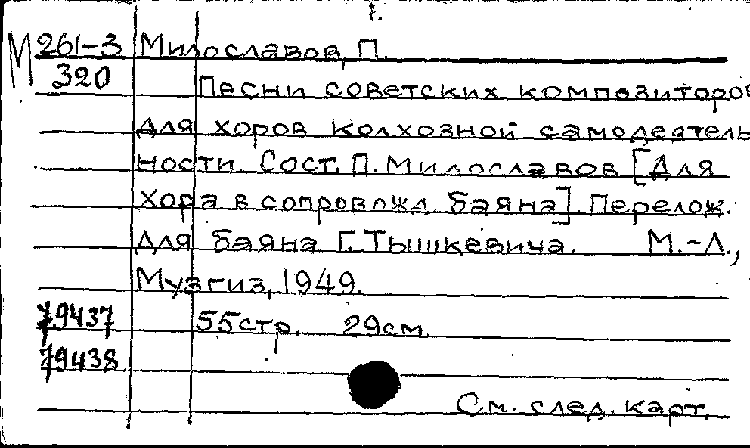 1.
М 261-3 Милославов, П.
320 Песни советских композиторов
для хоров колхозной самодеятель-
ности. Сост. П. Милославов [Для
хора в сопровожд. баяна]. Перелож.
для баяна Г. Тышкевича. М.-Л.,
Музгиз, 1949.
79437 55 стр. 29 см.
79438
См. след. карт.